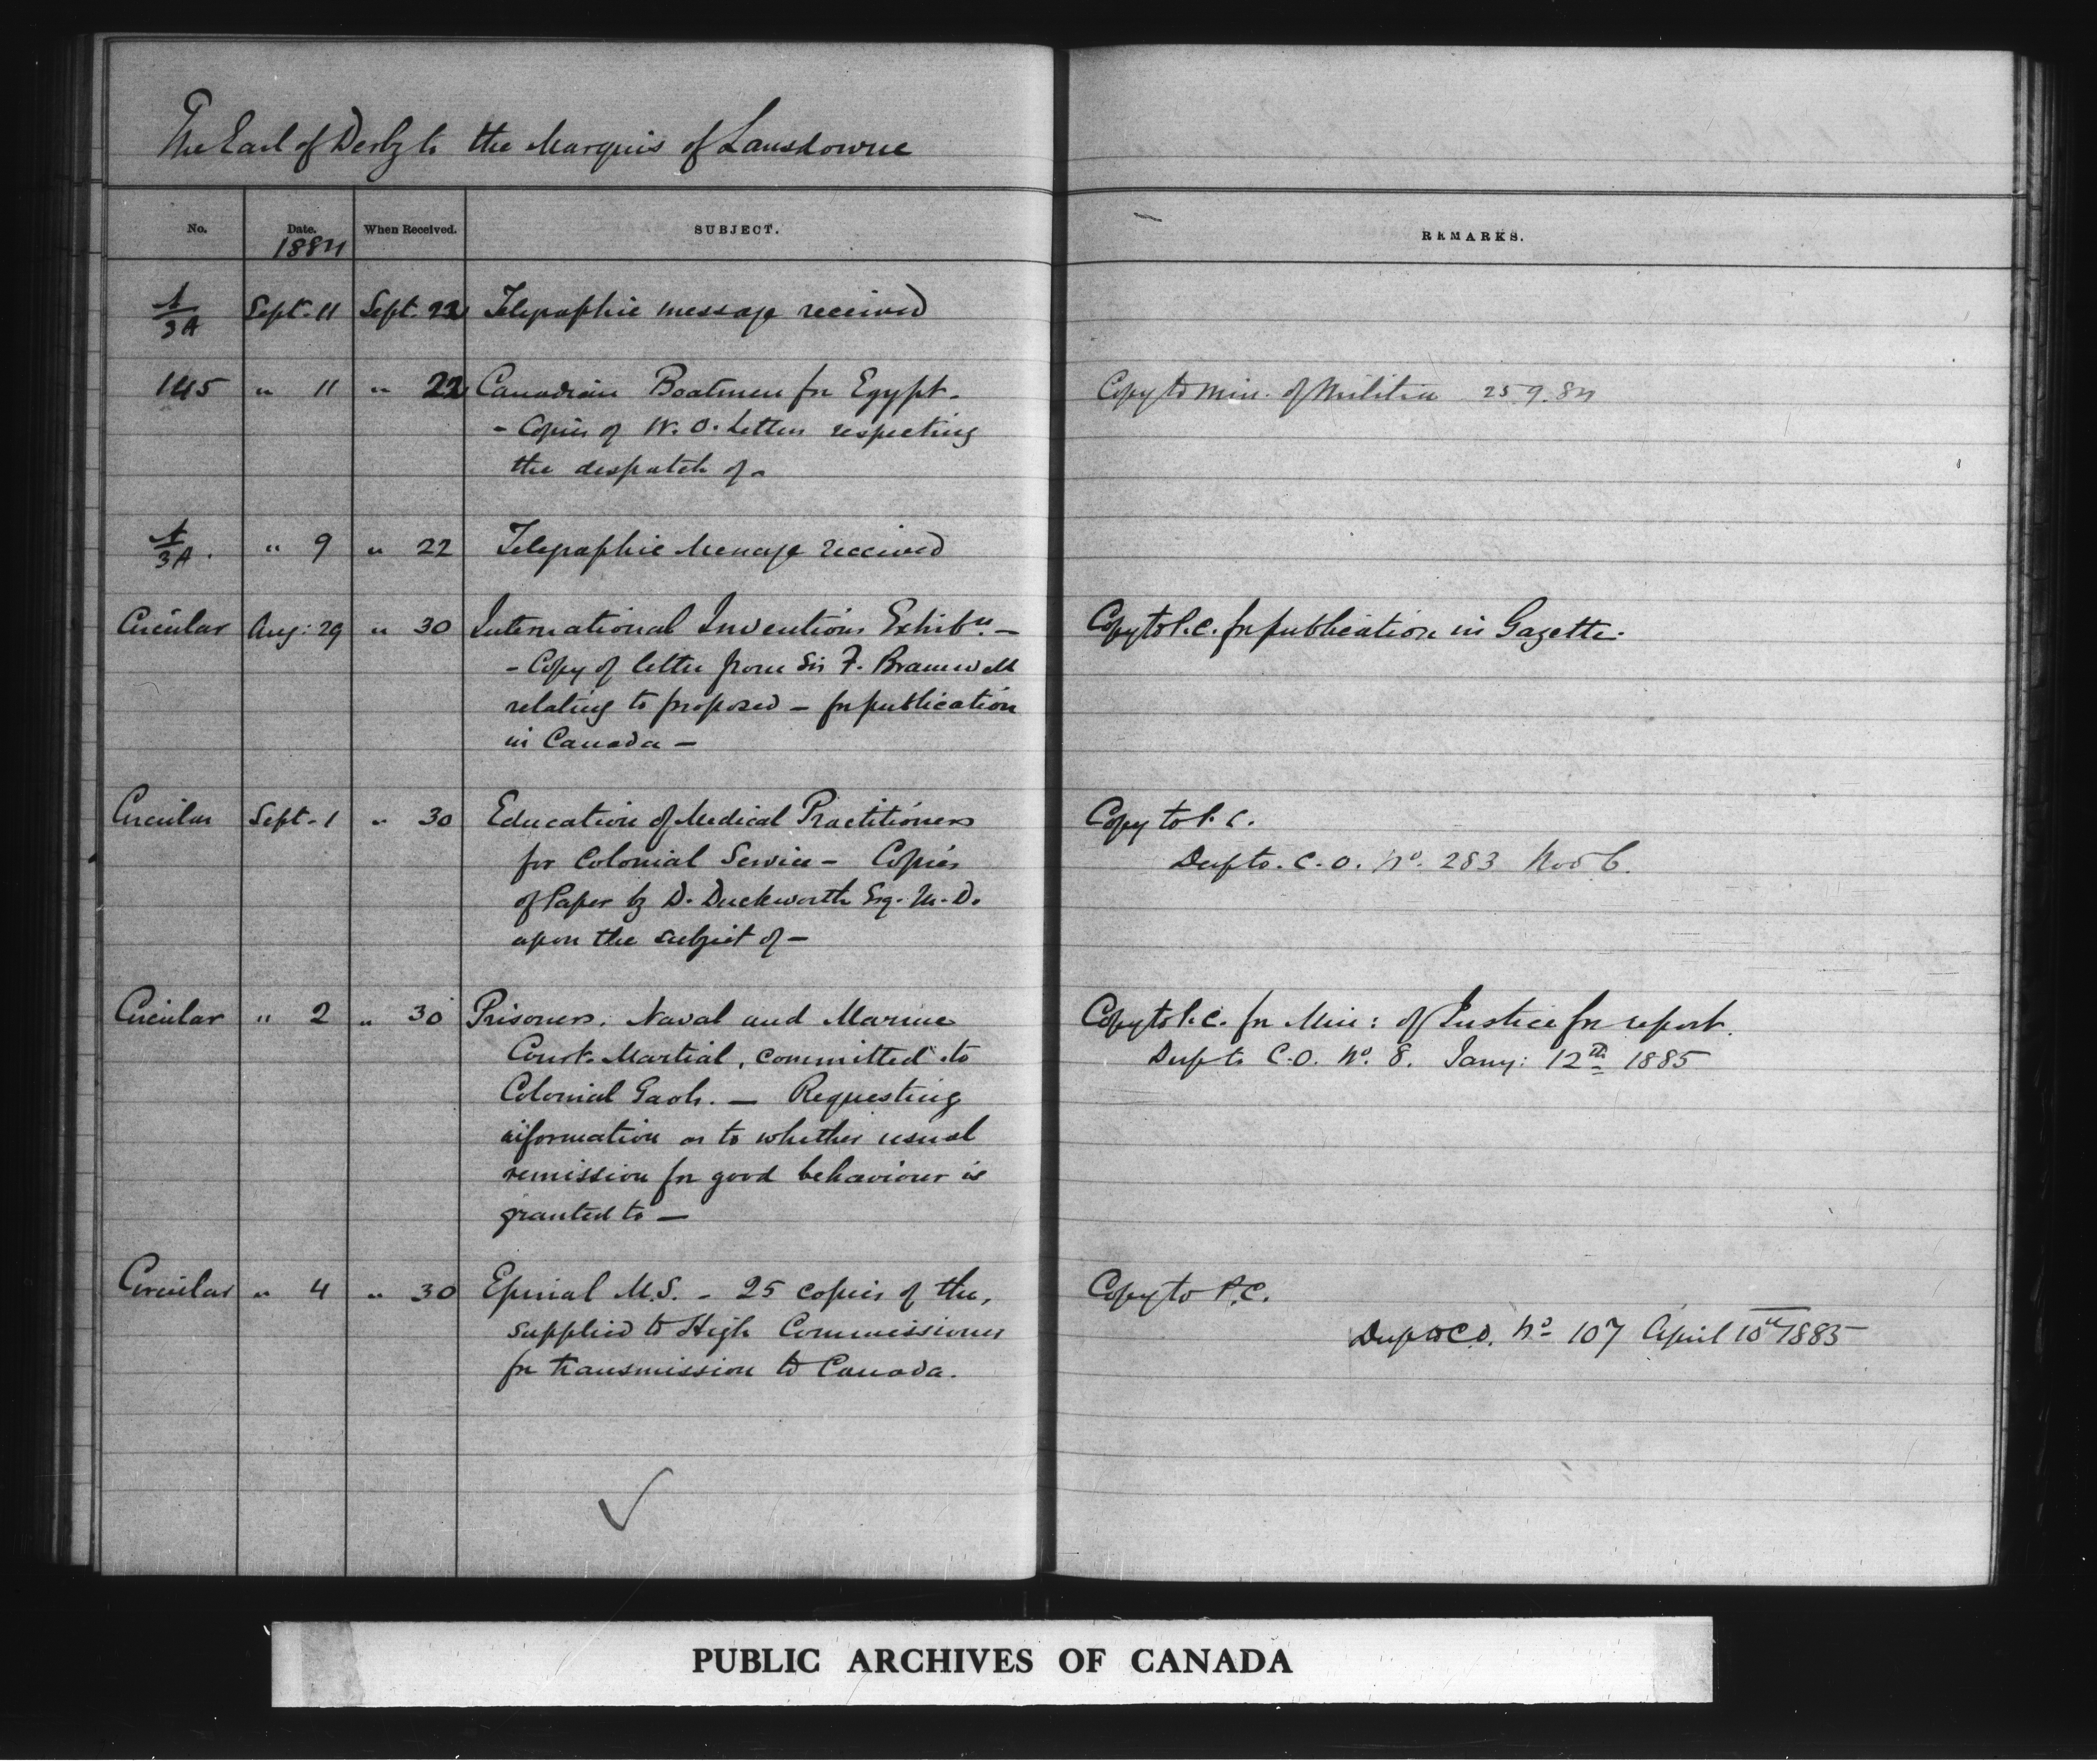 The Earl of Derby to the Marquis of Lansdowne
No. Date. When Received. SUBJECT. REMARKS.
1884
1/3A Sept. 11 Sept. 22 Telegraphic message received
145 " 11 " 22 Canadian Boatmen for Egypt - Copy to Min. of Militia 25.9.84
- Copies of W.O. Letters respecting
the despatch of -
1/3A. " 9 " 22 Telegraphic Message received
Circular Aug: 29 " 30 International Inventions Exhibn. - Copy to P.C. for publication in Gazette.
- Copy of letter from Sir F. Bramwell
relating to proposed - for publication
in Canada -
Circular Sept. 1 " 30 Education of Medical Practitioners Copy to P.C.
for Colonial Service - Copies Desp to. C.O. No. 283 Nov 6.
of Paper by D. Duckworth Esq. M.D.
upon the subject of -
Circular " 2 " 30 Prisoners. Naval and Marine Copy to P.C. for Min: of Justice for report.
Court. Martial, committed to Desp to C.O. No. 8. Jany: 12th 1885
Colonial Gaols. - Requesting
information as to whether usual
remission for good behaviour is
granted to -
Circular " 4 " 30 Epinal M.S. - 25 copies of the, Copy to P.C.
supplied to High Commissioner Desp to C.O. No 107 April 10th 1885
for transmission to Canada.
PUBLIC ARCHIVES OF CANADA